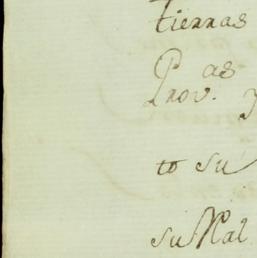 tierras
Prov.as y
to su
su Mal